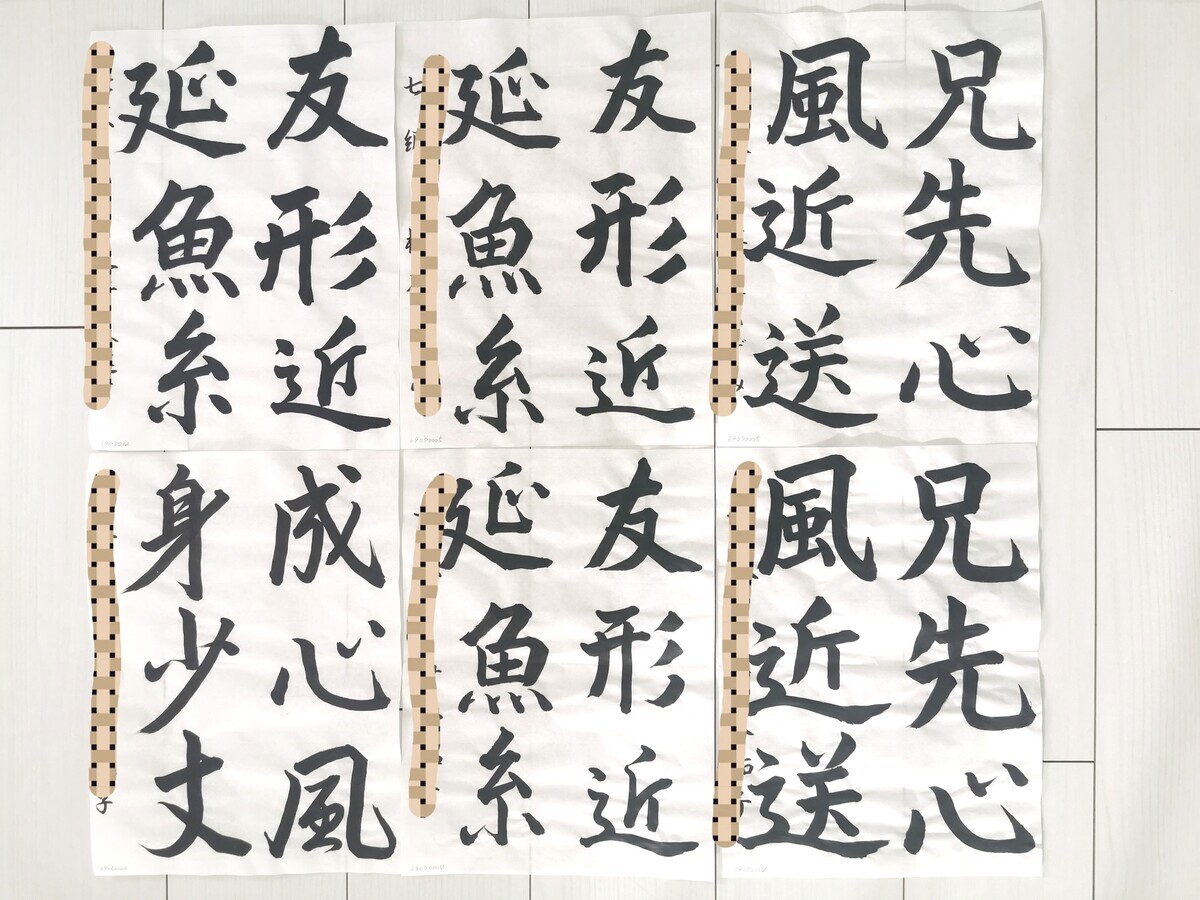 友形近
延魚糸
友形近
延魚糸
兄先心
風近送
成心風
身少丈
子
友形近
延魚糸
兄先心
風近送